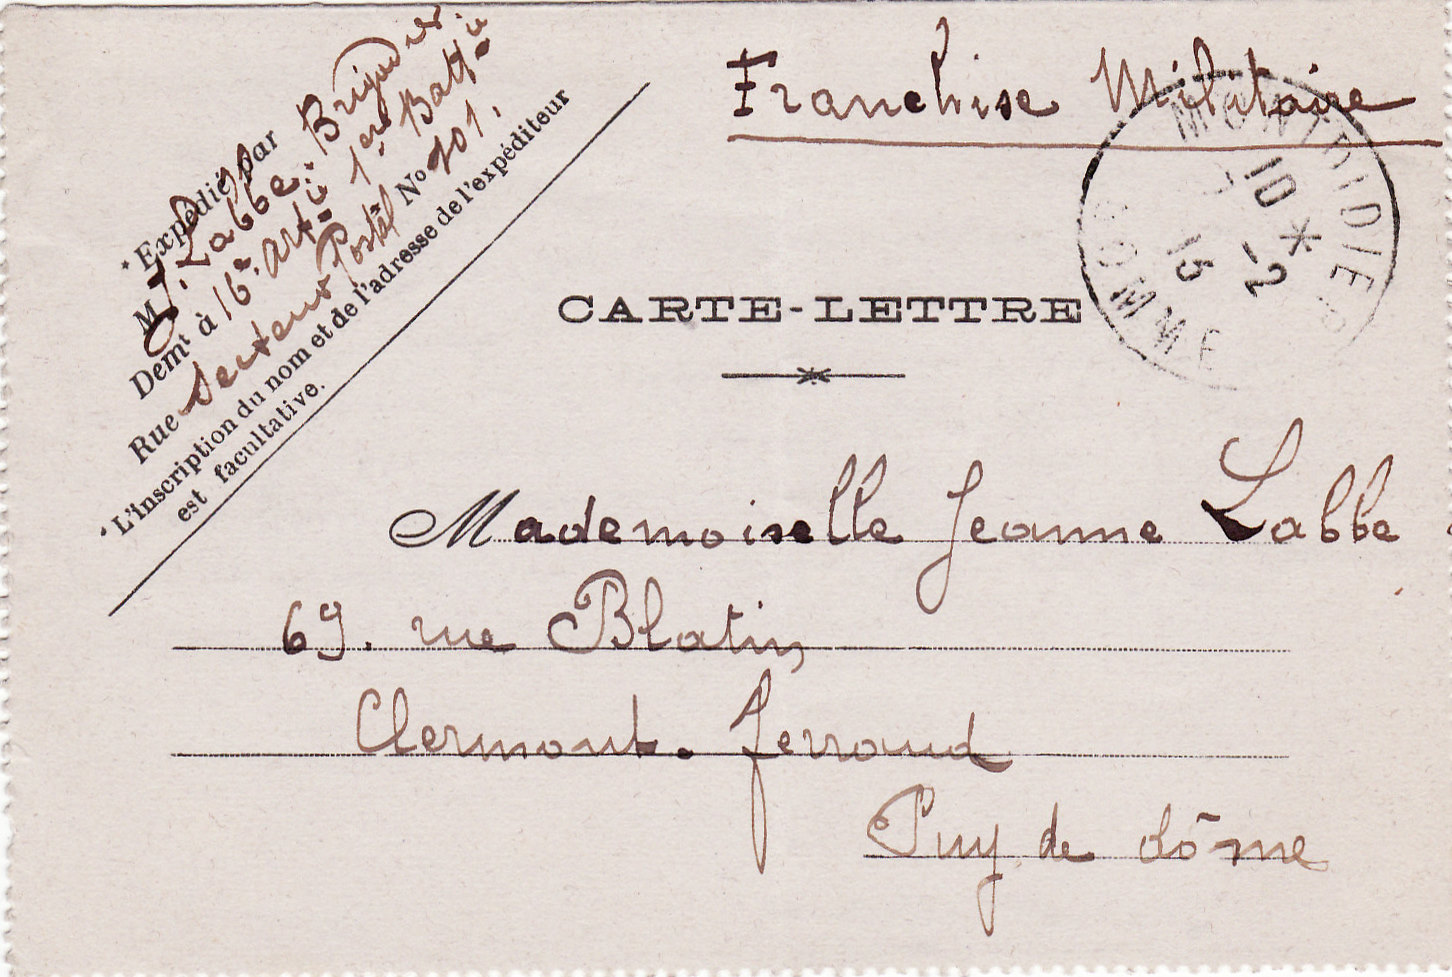 Franchise Militaire
* Expédié par
M J. Labbe. Brigadier
Demt à 16e Artie 1er Battie
Rue Secteur Postal No 101.
* L'Inscription du nom et de l'adresse de l'expéditeur
est facultative.
MONTDIDIER
10 * -2
15
SOMME
CARTE-LETTRE
Mademoiselle Jeanne Labbe
69. rue Blatin,
Clermont. Ferrand
Puy de dôme